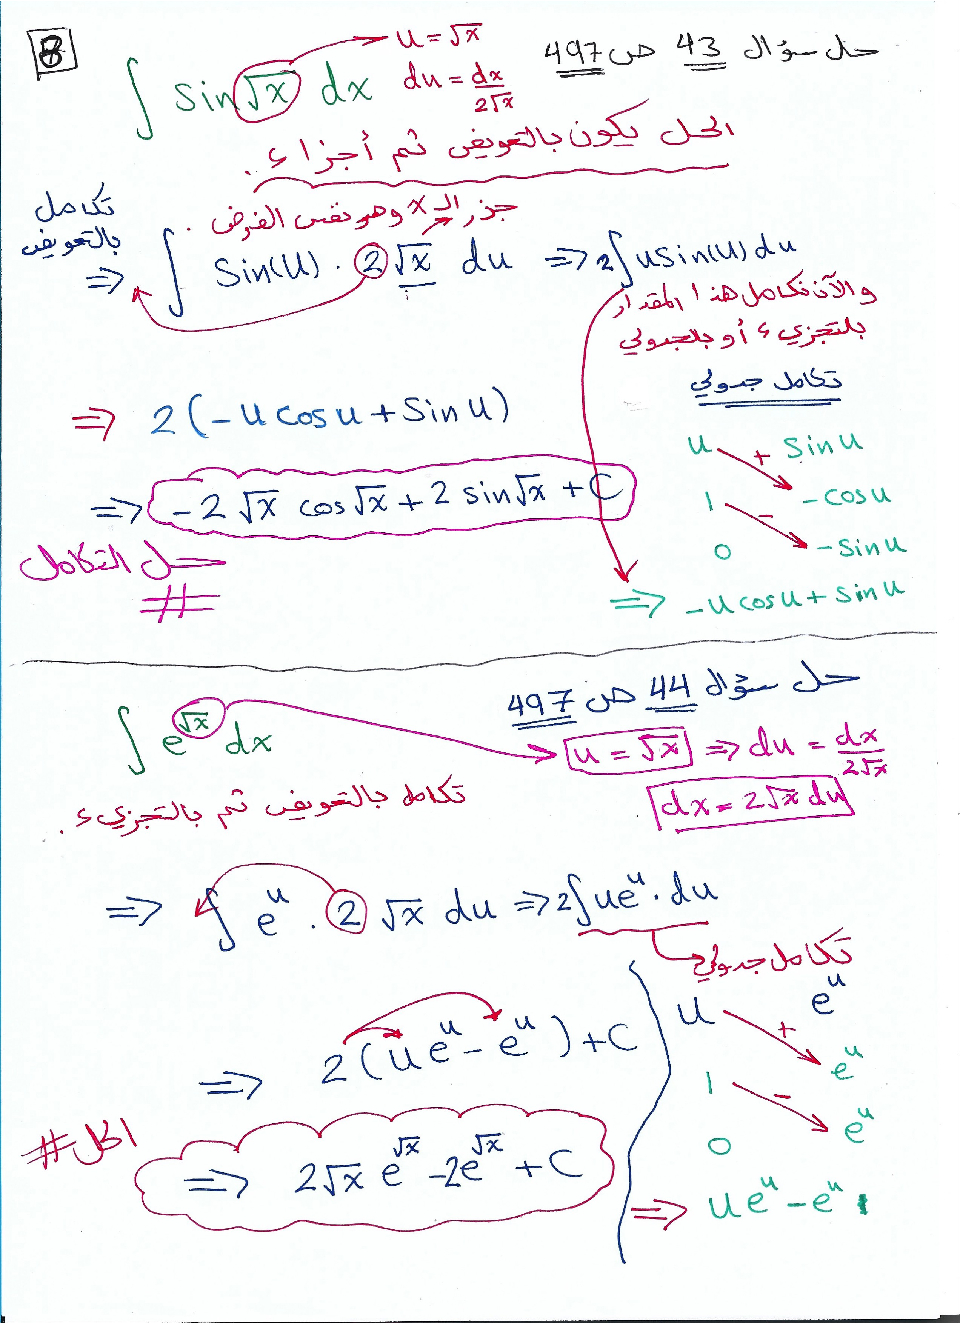 8
حل سؤال 43 ص 497
∫ sin√x dx
u = √x
du = dx/2√x
الحل يكون بالتعويض ثم أجزاء .
تكامل بالتعويض
جذر الـ x وهو نفس الفرض .
⇒ ∫ Sin(u) . 2√x du ⇒ 2∫usin(u)du
و الآن نكامل هذا المقدار
بلتجزيء أو بلجدولي
تكامل جدولي
⇒ 2(-u cosu + Sin u)
u + Sin u
1 - -cosu
0 -Sinu
⇒ -u cosu + sin u
⇒ -2√x cos√x + 2 sin√x + C
حل التكامل
#
حل سؤال 44 ص 497
∫ e^√x dx
u = √x ⇒ du = dx/2√x
dx = 2√x du
تكامل بالتعويض ثم بالتجزيء .
⇒ ∫ e^u . 2 √x du ⇒ 2∫ue^u . du
تكامل جدولي
u + e^u
1 - e^u
0 e^u
⇒ ue^u - e^u
⇒ 2(ue^u - e^u) + C
الحل #
⇒ 2√x e^√x - 2e^√x + C